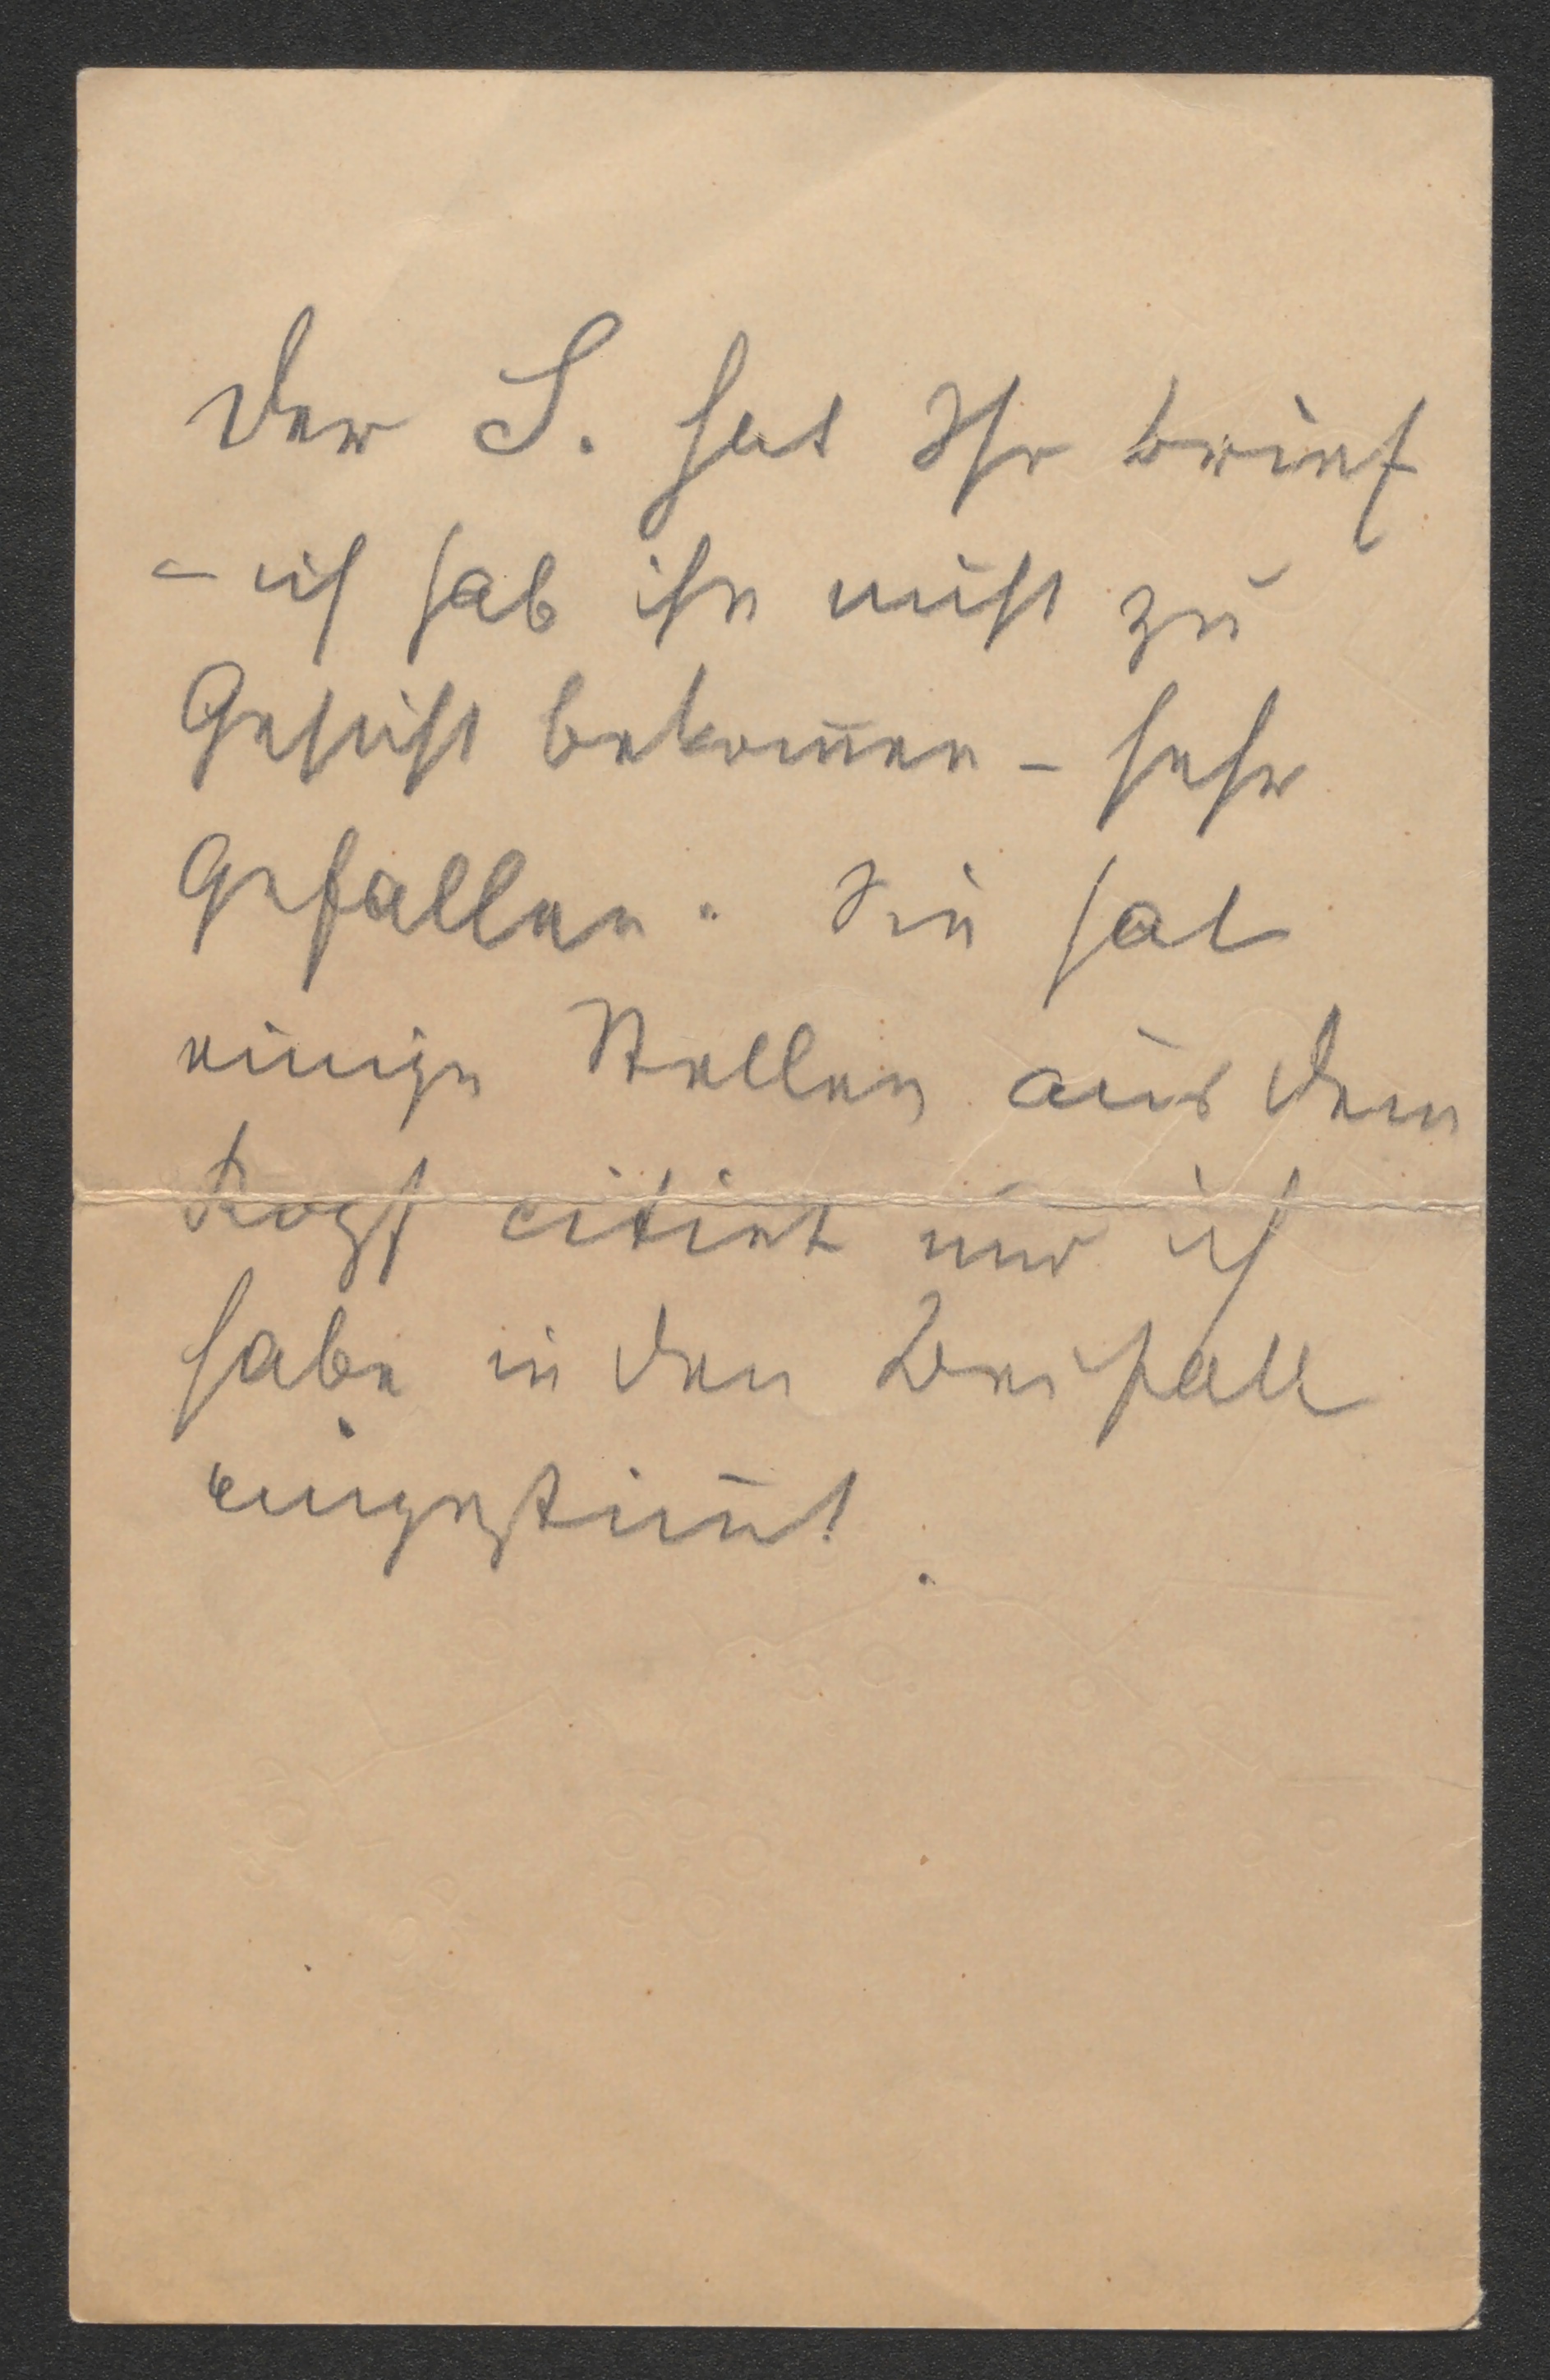 Der S. hat Ihr brief
– ich hab ihn nicht zu
Gesicht bekom̅en – sehr
Gefallen. Sie hat
einige Stellen aus dem
Kopf citiet und ich
habe in den Beifall
eingestim̅t.